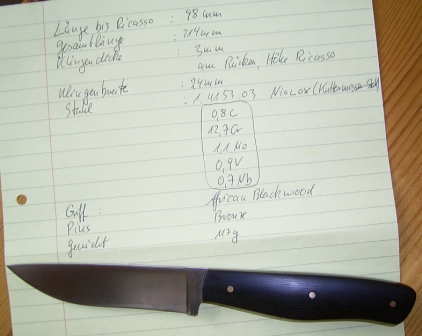 Länge bis Ricasso : 98 mm
Gesamtlänge : 214 mm
Klingendicke : 3mm
am Rücken, Höhe Ricasso
Klingenbreite : 24mm
Stahl : 1.4153.03 Niolox (Kuttermesser-Stahl)
0,8 C
12,7 Cr
1,1 Mo
0,9 V
0,7 Nb
Griff : African Blackwood
Pins Bronze
Gewicht 117g